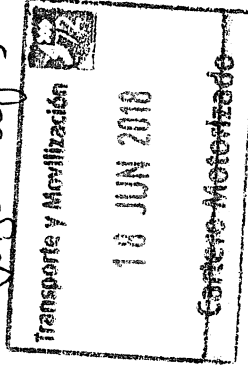 Transporte y Movilización
18 JUN 2018
Cartero Motorizado